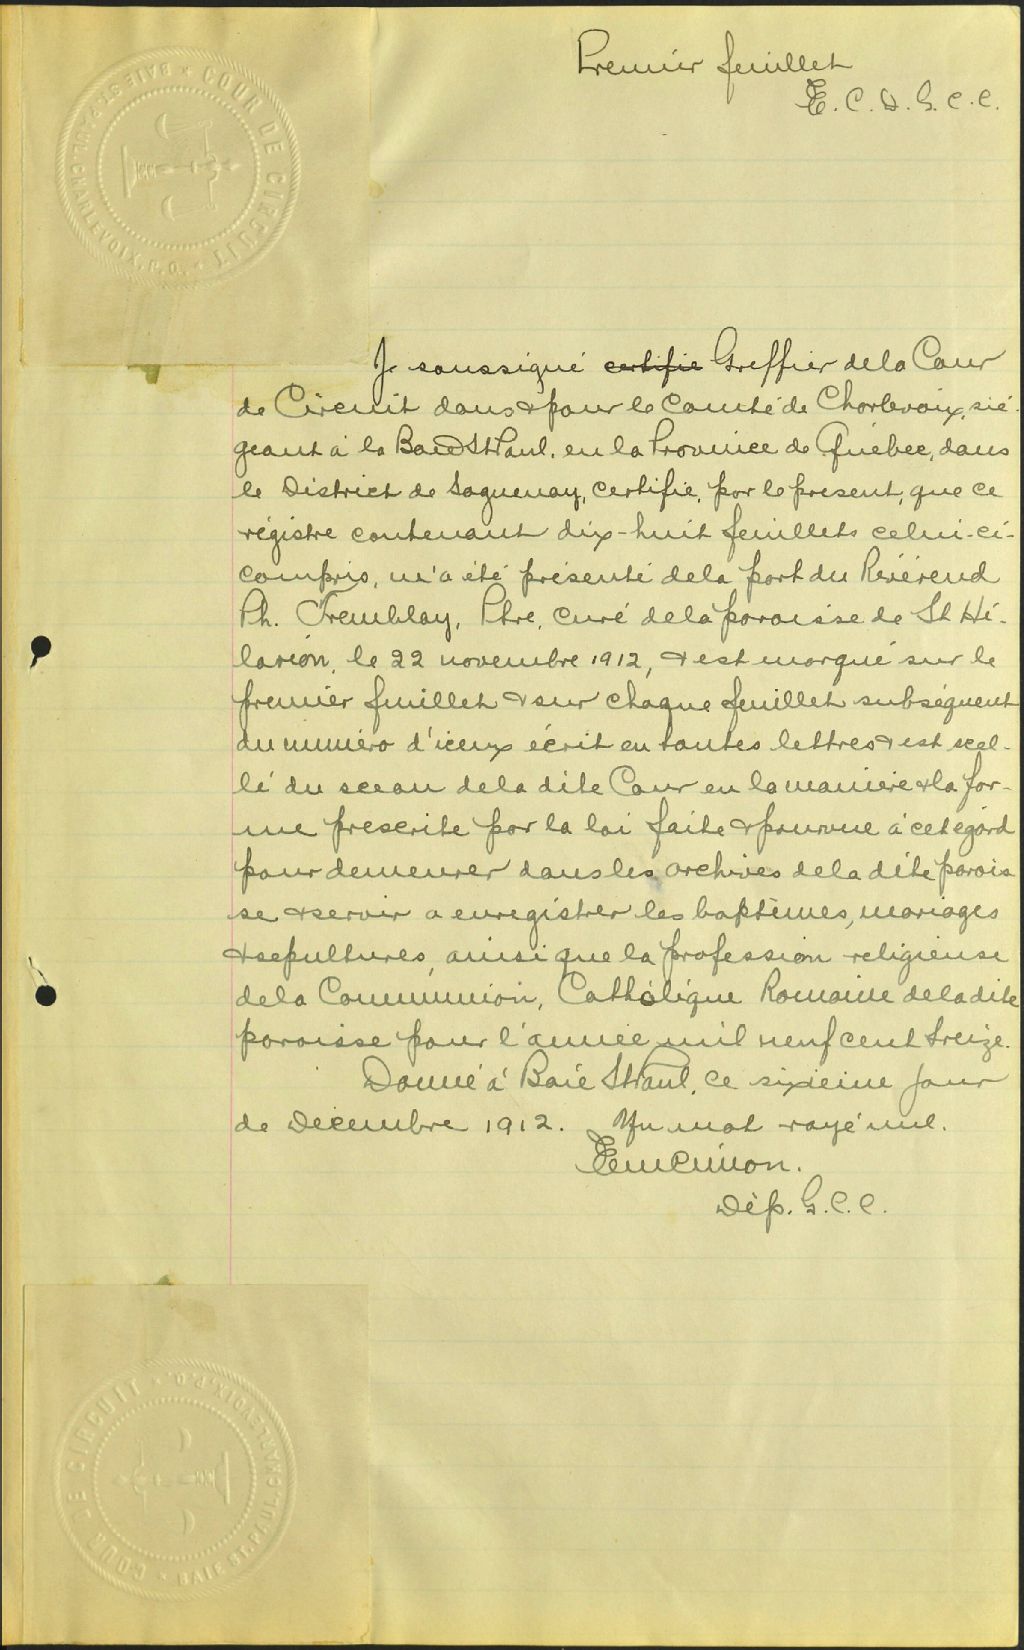 Premier feuillet
E. C. D. G. C. C.
COUR DE CIRCUIT * BAIE ST. PAUL, CHARLEVOIX, P.Q. *
Je soussigné certifie Greffier de la Cour
de Circuit dans & pour le comté de Charlevoix, sié-
geant à la Baie St Paul, en la Province de Québec, dans
le District de Saguenay, certifie, par le présent, que ce
régistre contenant dix-huit feuillets celui-ci-
compris, m'a été présenté de la part du Révérend
Ph. Tremblay, Ptre, curé de la paroisse de St Hi-
larion, le 22 novembre 1912, & est marqué sur le
premier feuillet & sur chaque feuillet subséquent
du numéro d'iceux écrit en toutes lettres & est scel-
lé du sceau de la dite Cour en la manière & la for-
me prescrite par la loi faite & pourvue à cet égard
pour demeurer dans les archives de la dite parois
se & servir a enregistrer les baptèmes, mariages
& sepultures, ainsi que la profession religieuse
de la Communion, Catholique Romaine de la dite
paroisse pour l'année mil neuf cent treize.
Donné à Baie St Paul, ce sixieme jour
de Décembre 1912. Un mot rayé nul.
Em Cimon.
Dép. G. C. C.
COUR DE CIRCUIT * BAIE ST. PAUL, CHARLEVOIX, P.Q. *